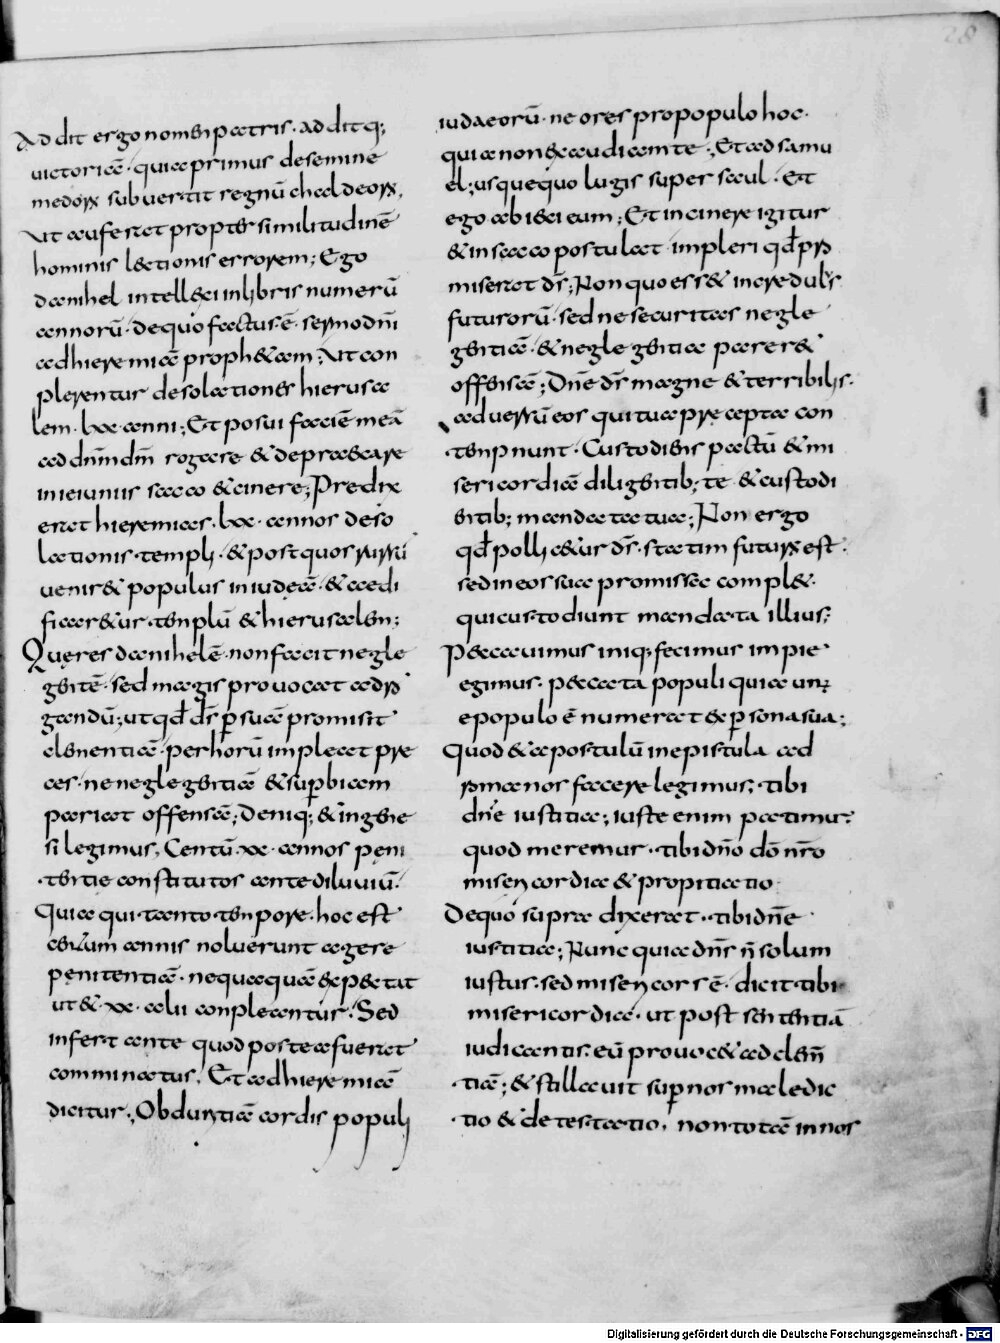 28
Addit ergo nomen patris · additq;
victoriã · quia primus desemine
medorꝝ subvertit regnũ chaldeorꝝ,
Ut auferat propter similitudinẽ
hominis lectionis errorem; Ego
danihel intellexi inlibris numerũ
annorũ · dequo factus · ẽ · sermo dñi
adhieremiã prophetam; Ut con
plerentur desolationes hierusa
lem · lxx · anni; Et posui faciẽ meã
ad dñm dm̃ rogare & depraecare
inieiuniis sacco & cinere; Predix
erat hieremias · lxx · annos deso
lationis · templi · & post quos rursũ
veniret populus iniudeã · & aedi
ficaretur · templũ & hierusalem;
Queres danihelẽ · non facit negle
gentẽ · sed magis provocat adp̃
candũ; ut qđ dr̃ ꝑ suã promisit
clementiã · per horũ impleat pre
ces · ne neglegentia & superbiam
pariat offensã; Deniq; & ingene
si legimus, Centũ · xx · annos peni
tentie constitutos ante diluviũ ·
Quia qui · tanto · tempore · hoc est
centum annis noluerunt agere
penitentiã · nequaquã expectat
ut & · xx · alii conpleantur · Sed
infert ante quod postea fuerat
comminatus, Et adhieremiã
dicitur; Obduritiã cordis populi
iudaeorũ · ne ores propopulo hoc ·
quia non exaudiam te; Et ad samu
el; usquequo lugis super saul · Et
ego abieci eum; Et incinere igitur
& in sacco postulat · impleri qđ pro
miserat dr̃; Non quo esset incredulus
futurorũ · sed ne securitas negle
gentiã · & neglegentia pareret
offensã; Dñe dr̃ magne & terribilis ·
adversũ eos qui tua precepta con
tempnunt · Custodiens pactũ & mi
sericordiã diligentib; te & custodi
entib; mandata tua; Non ergo
qđ pollicetur dr̃ · statim futurꝝ est ·
sed in eos sua promissa complet ·
qui custodiunt mandata illius;
Peccavimus iniq; fecimus impie
egimus · peccata populi quia unꝰ
epopulo ẽ numerat ex ꝑsona sua;
Quod & apostulũ inepistula ad
romanos facere legimus; · tibi
dñe iustitia; iuste enim patimur
quod meremur · tibi dño dõ nr̃o
misericordia & propitiatio
Dequo supra dixerat · · tibi dñe
iustitia; Nunc quia dñs ñ solum
iustus · sed misericors ẽ · dicit · tibi
misericordia · ut post sententiã
iudicantis · eũ provocet ad clem̃
tiã; & stillavit sup nos maledic
tio & detestatio, non totã in nos
Digitalisierung gefördert durch die Deutsche Forschungsgemeinschaft - DFG